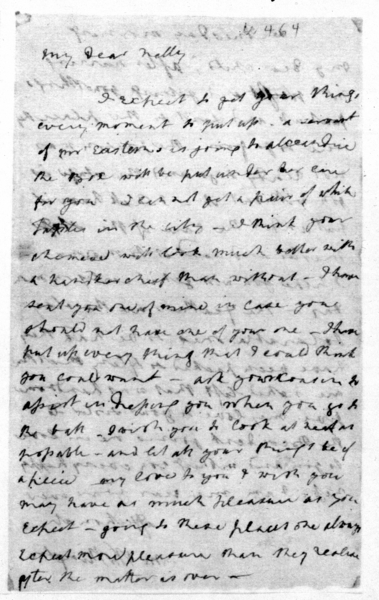 4.64
My Dear Nelly
I expect to get your things
every moment to put up. a servant
of mr Eastern's is going to alexandria
the Box will be put under her care
for you I can not get a pair of white
in the city - I think your
will look much better with
a handkerchief than without - I have
sent you one of mine in case you
should not have one of your one - I have
put up every thing that I could think
you could want - ask your cousin to
assist in you when you go to
the ball I wish you to look as neat as
possable - and let all your things be of
a piece my love to you I wish you
may have as much pleasure as you
Expect - going to these places one always
Expect more pleasure than they realise
after the matter is over -